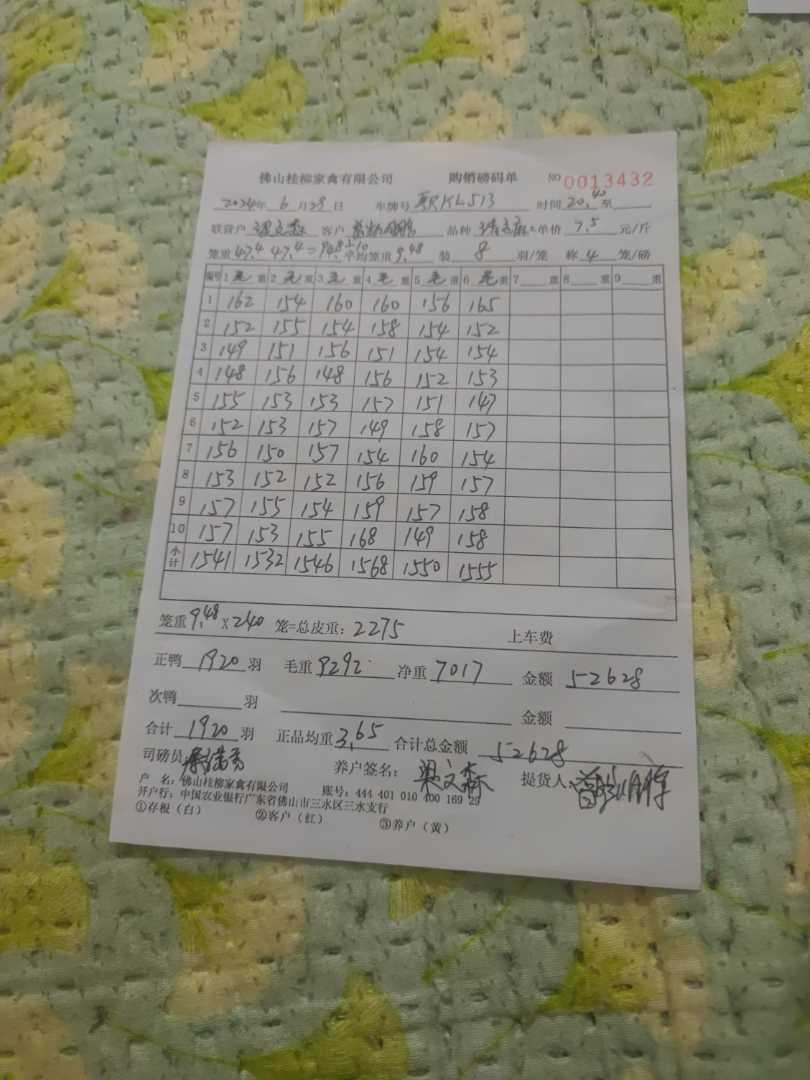 佛山桂柳家禽有限公司 购销磅码单 NO 0013432
2024年 6月28日 车牌号 粤RKL513 时间 20:40 至
联营户 梁文森 客户 品种 单价 7.5 元/斤
笼重 47.4 47.4 平均笼重 9.48 装 8 羽/笼 称 4 笼/磅
编号 1 毛 重 2 毛 重 3 毛 重 4 毛 重 5 毛 重 6 毛 重 7 重 8 重 9 重
1 162 154 160 160 156 165
2 152 155 154 158 154 152
3 149 151 156 151 154 154
4 148 156 148 156 152 153
5 155 153 153 157 151 147
6 152 153 157 149 158 157
7 156 150 157 154 160 154
8 153 152 152 156 159 157
9 157 155 154 159 157 158
10 157 153 155 168 149 158
小计 1541 1532 1546 1568 1550 1555
笼重 9.48 x 240 笼=总皮重: 2275 上车费
正鸭 1920 羽 毛重 9292 净重 7017 金额 52628
次鸭 羽 金额
合计 1920 羽 正品均重 3.65 合计总金额 52628
司磅员 养户签名: 梁文森 提货人
户 名: 佛山桂柳家禽有限公司 账号: 444 401 010 400 169 29
开户行: 中国农业银行广东省佛山市三水区三水支行
①存根（白） ②客户（红） ③养户（黄）